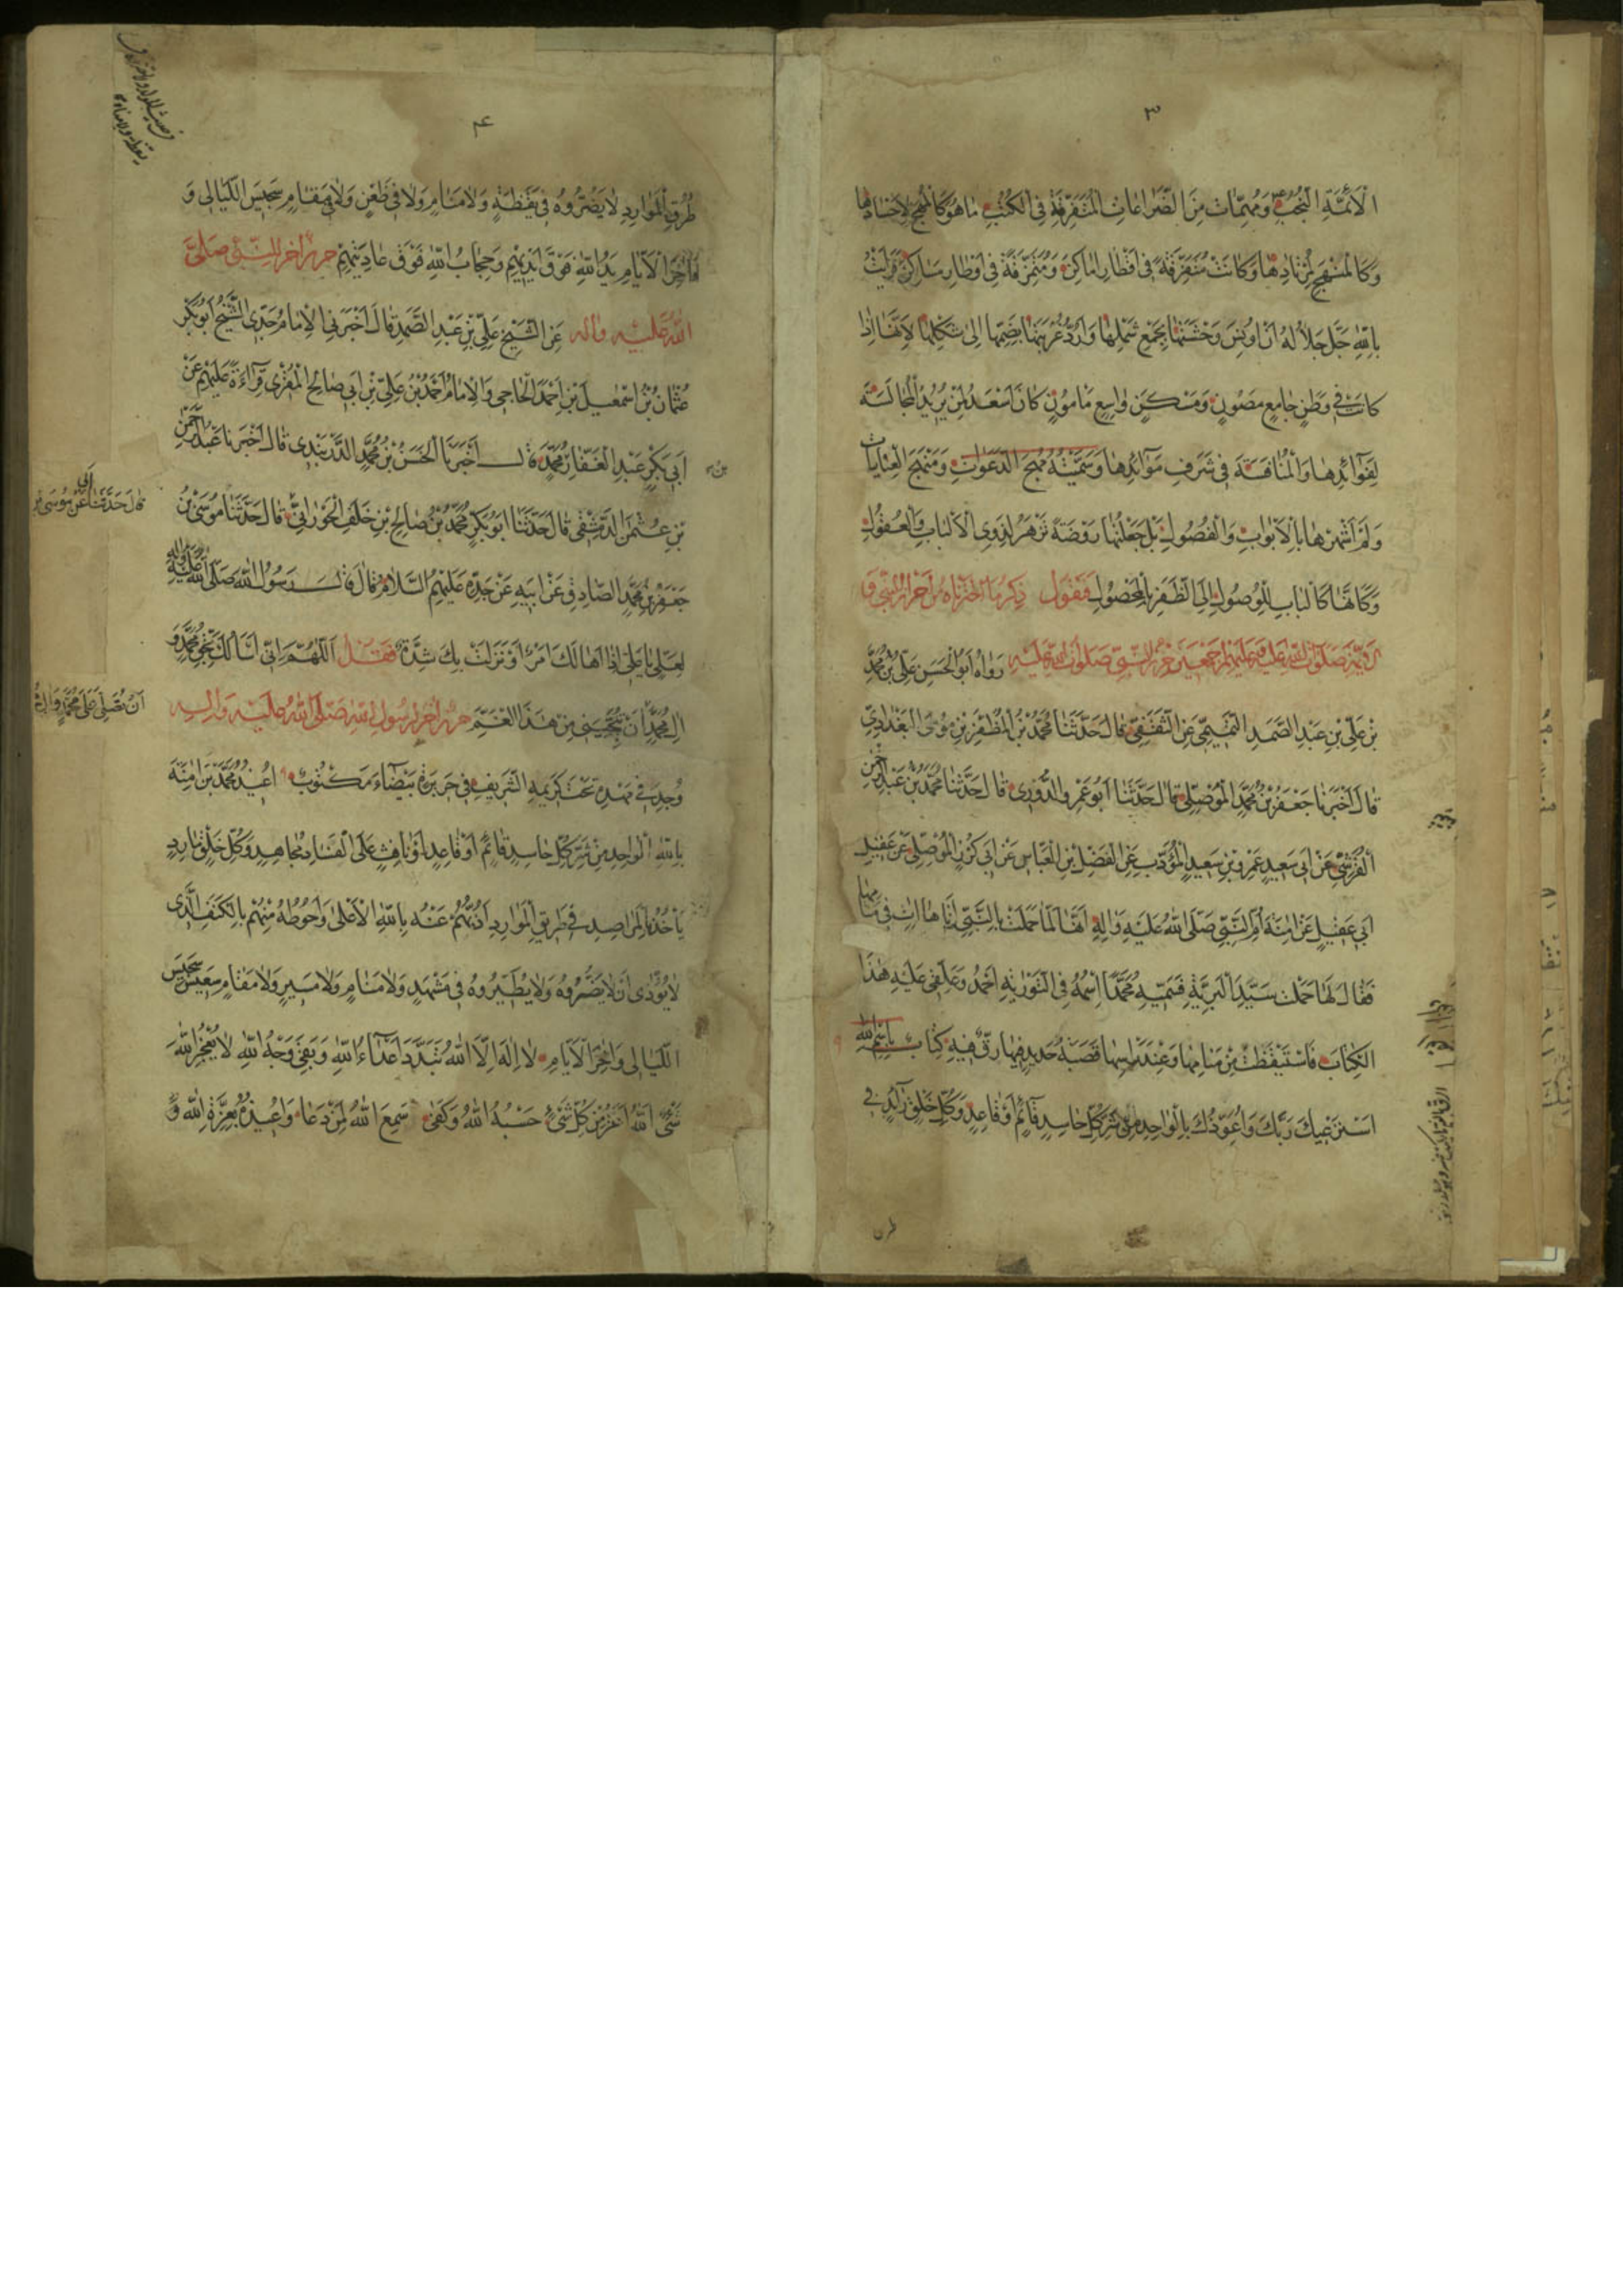 ٣
الْأَئِمَّةِ النُّجُبِ وَمُهِمَّاتٍ مِنَ الضَّرَاعَاتِ الْمُتَفَرِّقَةِ فِي الْكُتُبِ مَا هُوَ كَالْمُهَجِ لِأَجْسَادِهَا
وَكَالْمَنْهَجِ لِمُرْتَادِهَا وَكَانَتْ مُتَفَرِّقَةً فِي أَقْطَارِ أَمَاكِنَ وَمُتَمَزِّقَةً فِي أَوْطَارِ مَسَاكِنَ فَرَأَيْتُ
بِاللهِ جَلَّ جَلَالُهُ أَنْ أُونِسَ وَحْشَتَهَا بِجَمْعِ شَمْلِهَا وَأَرُدَّ غُرْبَتَهَا بِضَمِّهَا إِلَى شَكْلِهَا لِأَنَّهَا إِذَا
كَانَتْ فِي وَطَنٍ جَامِعٍ مَصُونٍ وَمَسْكَنٍ وَاسِعٍ مَأْمُونٍ كَانَ أَسْعَدَ لِمَنْ يُرِيدُ الْمُجَالَسَةَ
لِفَوَائِدِهَا وَالْمُنَافَسَةَ فِي شَرَفِ مَوَائِدِهَا وَسَمَّيْتُهُ مُهَجَ الدَّعَوَاتِ وَمَنْهَجَ الْعِنَايَاتِ
وَلَمْ أَشْهَرْهَا بِالْأَبْوَابِ وَالْفُصُولِ بَلْ جَعَلْتُهَا رَوْضَةً تَزْهَرُ لِذَوِي الْأَلْبَابِ وَالْعُقُولِ
وَكَأَنَّهَا كَالْبَابِ لِلْوُصُولِ إِلَى الظَّفَرِ بِالْمَحْصُولِ فَنَقُولُ ذِكْرُ مَا اخْتَرْنَاهُ مِنْ أَحْرَازِ النَّبِيِّ وَ
الْأَئِمَّةِ صَلَوَاتُ اللهِ عَلَيْهِ وَعَلَيْهِمْ أَجْمَعِينَ حِرْزُ النَّبِيِّ صَلَوَاتُ اللهِ عَلَيْهِ رَوَاهُ أَبُو الْحَسَنِ عَلِيُّ بْنُ مُحَمَّدِ
بْنِ عَلِيِّ بْنِ عَبْدِ الصَّمَدِ التَّمِيمِيُّ عَنِ الثَّقَفِيِّ قَالَ حَدَّثَنَا مُحَمَّدُ بْنُ الْمُظَفَّرِ بْنِ مُوسَى الْبَغْدَادِيُّ
قَالَ أَخْبَرَنَا جَعْفَرُ بْنُ مُحَمَّدٍ الْمَوْصِلِيُّ قَالَ حَدَّثَنَا أَبُو عَمْرٍو الدُّورِيُّ قَالَ حَدَّثَنَا مُحَمَّدُ بْنُ عَبْدِ الرَّحْمَنِ
الْقُرَشِيُّ عَنْ أَبِي سَعِيدٍ عَمْرِو بْنِ سَعِيدٍ الْمُؤَدِّبِ عَنِ الْفَضْلِ بْنِ الْعَبَّاسِ عَنْ أَبِي كُرْزٍ الْمَوْصِلِيِّ عَنْ عَقِيلِ
أَبِي عَقِيلٍ عَنْ آمِنَةَ أُمِّ النَّبِيِّ صَلَّى اللهُ عَلَيْهِ وَآلِهِ أَنَّهَا لَمَّا حَمَلَتْ بِالنَّبِيِّ أَتَاهَا آتٍ فِي مَنَامِهَا
فَقَالَ لَهَا حَمَلْتِ سَيِّدَ الْبَرِيَّةِ فَسَمِّيهِ مُحَمَّدًا اسْمُهُ فِي التَّوْرَيةِ أَحْمَدُ وَعَلِّقِي عَلَيْهِ هَذَا
الْكِتَابَ فَاسْتَيْقَظَتْ مِنْ مَنَامِهَا وَعِنْدَ رَأْسِهَا قَصَبَةُ حَدِيدٍ فِيهَا رَقٌّ فِيهِ كِتَابٌ بِسْمِ اللهِ
أَسْتَرْعِيكَ رَبَّكَ وَأُعَوِّذُكَ بِالْوَاحِدِ مِنْ شَرِّ كُلِّ حَاسِدٍ قَائِمٍ أَوْ قَاعِدٍ وَكُلِّ خَلْقٍ زَائِدٍ فِي
طرق
٤
طُرُقِ الْمَوَارِدِ لَا يَضُرُّوهُ فِي يَقَظَةٍ وَلَا مَنَامٍ وَلَا فِي ظَعْنٍ وَلَا فِي مَقَامٍ سَجِيسَ اللَّيَالِي وَ
أَوَاخِرَ الْأَيَّامِ يَدُ اللهِ فَوْقَ أَيْدِيهِمْ وَحِجَابُ اللهِ فَوْقَ عَادِيَتِهِمْ حِرْزٌ آخَرُ لِلنَّبِيِّ صَلَّى
اللهُ عَلَيْهِ وَآلِهِ عَنِ الشَّيْخِ عَلِيِّ بْنِ عَبْدِ الصَّمَدِ قَالَ أَخْبَرَنِي الْإِمَامُ جَدِّي الشَّيْخُ أَبُو بَكْرٍ
عُثْمَانُ بْنُ إِسْمَعِيلَ بْنِ أَحْمَدَ الْحَاجِي وَالْإِمَامُ أَحْمَدُ بْنُ عَلِيِّ بْنِ أَبِي صَالِحٍ الْمُقْرِي قِرَاءَةً عَلَيْهِمْ عَنْ
أَبِي بَكْرٍ عَبْدِ الْغَفَّارِ مُحَمَّدٍ قَالَ أَخْبَرَنَا الْحَسَنُ بْنُ مُحَمَّدٍ الدَّرْبَنْدِيُّ قَالَ أَخْبَرَنَا عَبْدُ الرَّحْمَنِ
بْنِ عُثْمَنَ الدِّمَشْقِيُّ قَالَ حَدَّثَنَا أَبُو بَكْرٍ مُحَمَّدُ بْنُ صَالِحِ بْنِ خَلَفٍ الْجَوْرَانِيُّ قَالَ حَدَّثَنَا مُوسَى بْنُ
قَالَ حَدَّثَنَا أَبِي عَنْ مُوسَى بْنِ
جَعْفَرِ بْنِ مُحَمَّدٍ الصَّادِقِ عَنْ أَبِيهِ عَنْ جَدِّهِ عَلَيْهِمُ السَّلَامُ قَالَ قَالَ رَسُولُ اللهِ صَلَّى اللهُ عَلَيْهِ وَآلِهِ
لِعَلِيٍّ يَا عَلِيُّ إِذَا هَالَكَ أَمْرٌ أَوْ نَزَلَتْ بِكَ شِدَّةٌ فَقُلْ اَللَّهُمَّ إِنِّي أَسْأَلُكَ بِحَقِّ مُحَمَّدٍ وَ
آلِ مُحَمَّدٍ أَنْ تُنْجِيَنِي مِنْ هَذَا الْغَمِّ حِرْزٌ آخَرُ لِرَسُولِ اللهِ صَلَّى اللهُ عَلَيْهِ وَآلِهِ
أَنْ تُصَلِّيَ عَلَى مُحَمَّدٍ وَآلِ
وُجِدَ فِي مَهْدِهِ تَحْتَ كَرِيمِهِ الشَّرِيفِ فِي حَرِيرَةٍ بَيْضَاءَ مَكْتُوبٌ أُعِيذُ مُحَمَّدَ بْنَ آمِنَةَ
بِاللهِ الْوَاحِدِ مِنْ شَرِّ كُلِّ حَاسِدٍ قَائِمٍ أَوْ قَاعِدٍ أَوْ نَافِثٍ عَلَى الْفَسَادِ مُجَاهِدٍ وَكُلِّ خَلْقٍ مَارِدٍ
يَأْخُذُ بِالْمَرَاصِدِ فِي طَرِيقِ الْمَوَارِدِ أَذُبُّهُمْ عَنْهُ بِاللهِ الْأَعْلَى وَأَحُوطُهُ مِنْهُمْ بِالْكَنَفِ الَّذِي
لَا يُؤْذَى أَنْ لَا يَضُرُّوهُ وَلَا يُطَيِّرُوهُ فِي مَشْهَدٍ وَلَا مَنَامٍ وَلَا مَسِيرٍ وَلَا مَقَامٍ سَجِيسَ
اللَّيَالِي وَآخِرَ الْأَيَّامِ لَا إِلَهَ إِلَّا اللهُ تَبَدَّدَ أَعْدَاءُ اللهِ وَبَقِيَ وَجْهُ اللهِ لَا يُعْجِزُ اللهَ
شَيْءٌ اللهُ أَعَزُّ مِنْ كُلِّ شَيْءٍ حَسْبُهُ اللهُ وَكَفَى سَمِعَ اللهُ لِمَنْ دَعَا وَأُعِيذُهُ بِعِزَّةِ اللهِ وَ